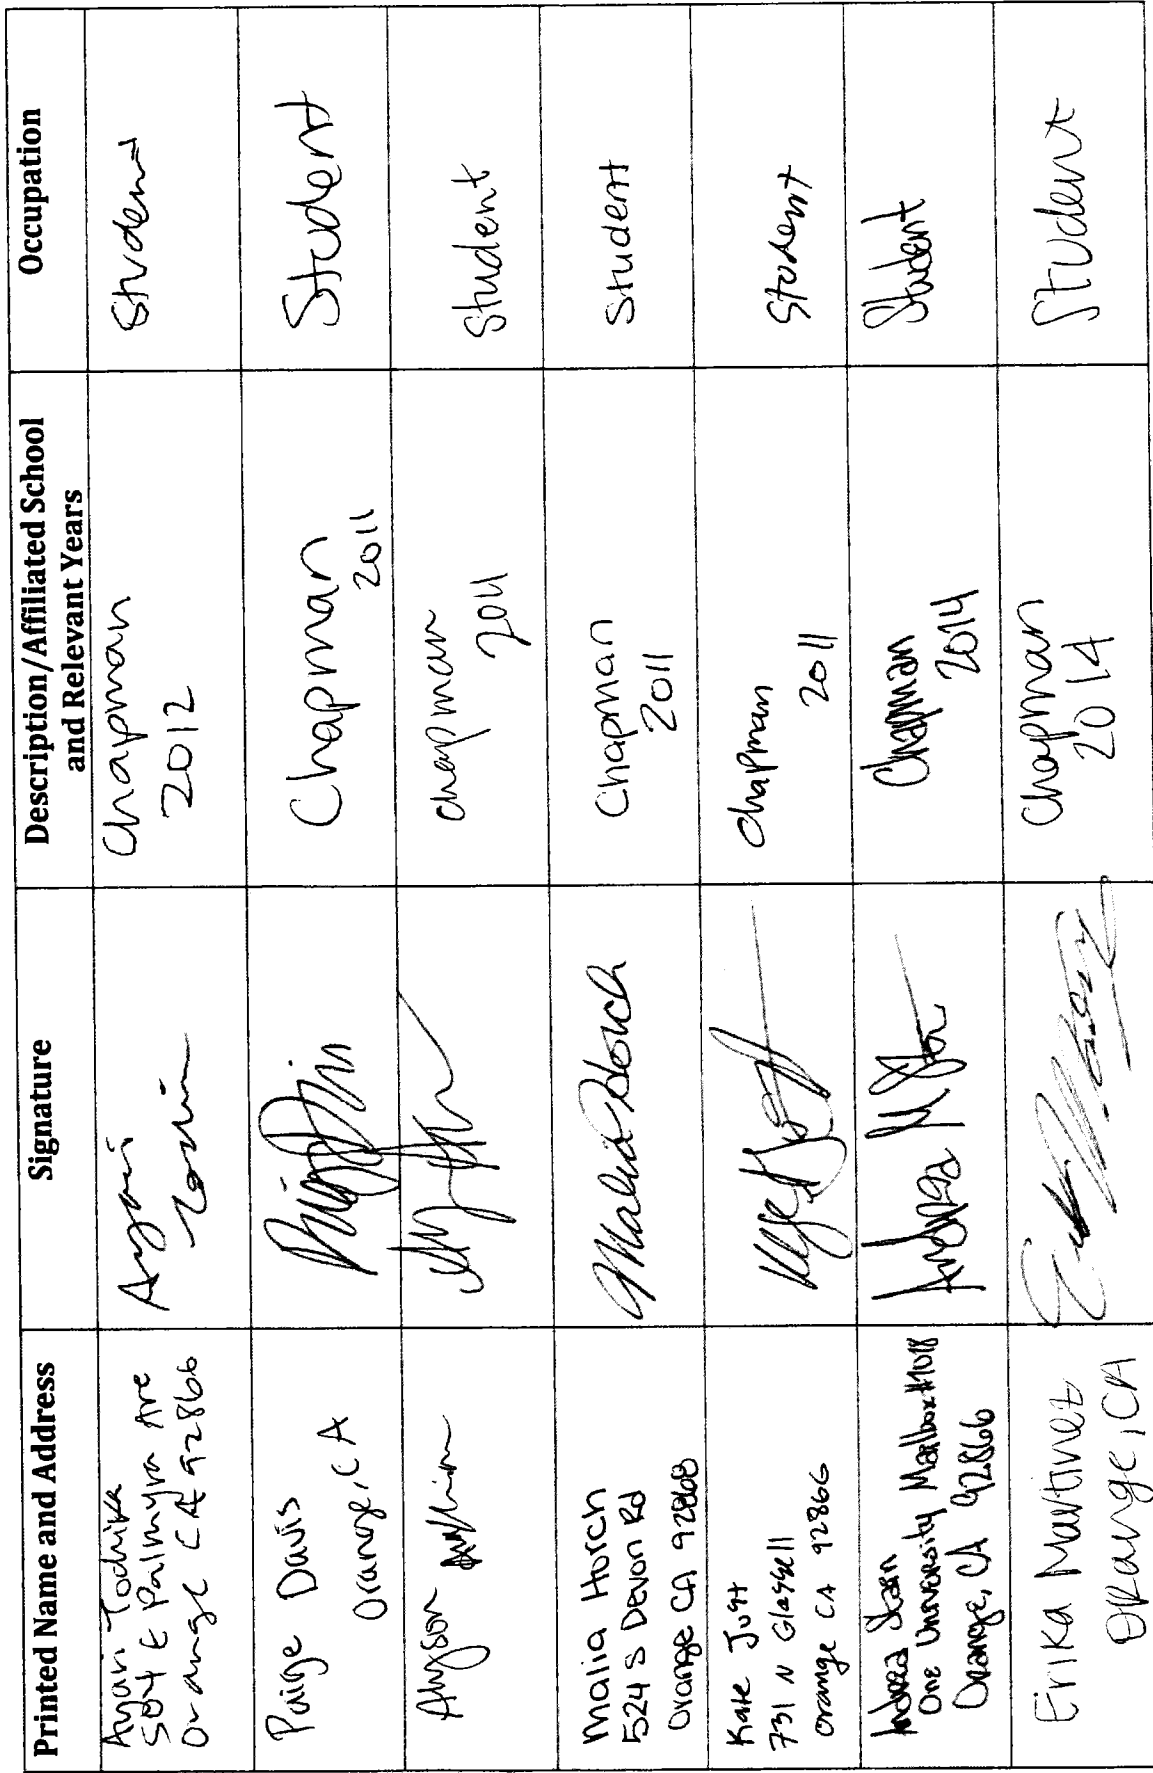 Printed Name and Address
Signature
Description/Affiliated School
and Relevant Years
Occupation
Ayari
504 E Palmyra Ave
Orange CA 92866
Ayari
Chapman
2012
Student
Paige Davis
Orange, CA
Chapman
2011
Student
Alyson
chapman
2011
Student
Malia Horch
524 S Devon Rd
Orange CA 92868
Malia Horch
Chapman
2011
Student
Kate Just
731 N Glassell
orange CA 92866
Chapman
2011
Student
Andrea
One University Mailbox #1018
Orange, CA 92866
Andrea M
Chapman
2014
Student
Erika Martinez
Orange, CA
Chapman
2014
Student